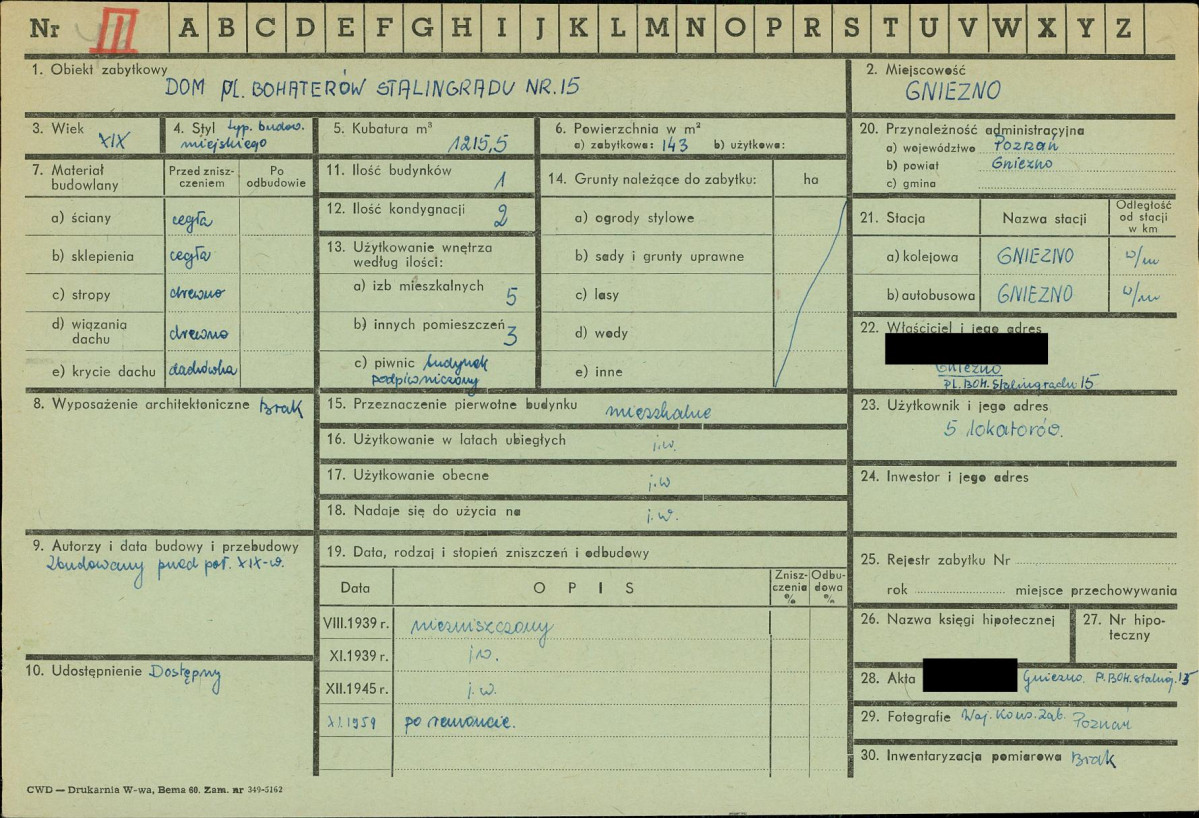 Nr III A B C D E F G H I J K L M N O P R S T U V W X Y Z
1. Obiekt zabytkowy
DOM PL. BOHATERÓW STALINGRADU NR. 15
2. Miejscowość
GNIEZNO
3. Wiek
XIX
4. Styl typ. budow.
miejskiego
5. Kubatura m³
1215,5
6. Powierzchnia w m²
a) zabytkowa: 143 b) użytkowa:
20. Przynależność administracyjna
a) województwo Poznań
b) powiat Gniezno
c) gmina
7. Materiał budowlany
Przed zniszczeniem
Po odbudowie
a) ściany cegła
b) sklepienia cegła
c) stropy drewno
d) wiązania dachu drewno
e) krycie dachu dachówka
11. Ilość budynków 1
12. Ilość kondygnacji 2
13. Użytkowanie wnętrza
według ilości:
a) izb mieszkalnych 5
b) innych pomieszczeń 3
c) piwnic budynek
podpiwniczony
14. Grunty należące do zabytku: ha
a) ogrody stylowe
b) sady i grunty uprawne
c) lasy
d) wody
e) inne
21. Stacja
Nazwa stacji
Odległość
od stacji
w km
a) kolejowa GNIEZNO w/m
b) autobusowa GNIEZNO w/m
22. Właściciel i jego adres
Gniezno
PL. BOH. Stalingradu 15
8. Wyposażenie architektoniczne Brak
15. Przeznaczenie pierwotne budynku mieszkalne
16. Użytkowanie w latach ubiegłych j.w.
17. Użytkowanie obecne j.w
18. Nadaje się do użycia na j.w.
23. Użytkownik i jego adres
5 lokatorów.
24. Inwestor i jego adres
9. Autorzy i data budowy i przebudowy
Zbudowany przed poł. XIX-w.
10. Udostępnienie Dostępny
19. Data, rodzaj i stopień zniszczeń i odbudowy
Data
O P I S
Zniszczenia %
Odbudowa %
VIII.1939 r. niezniszczony
XI.1939 r. j.w.
XII.1945 r. j.w.
XI.1959 po remoncie.
25. Rejestr zabytku Nr
rok miejsce przechowywania
26. Nazwa księgi hipotecznej
27. Nr hipoteczny
28. Akta Gniezno. Pl. BOH. Stalng. 15
29. Fotografie Woj. Kons. Zab. Poznań
30. Inwentaryzacja pomiarowa Brak
CWD — Drukarnia W-wa, Bema 60. Zam. nr 349-5162